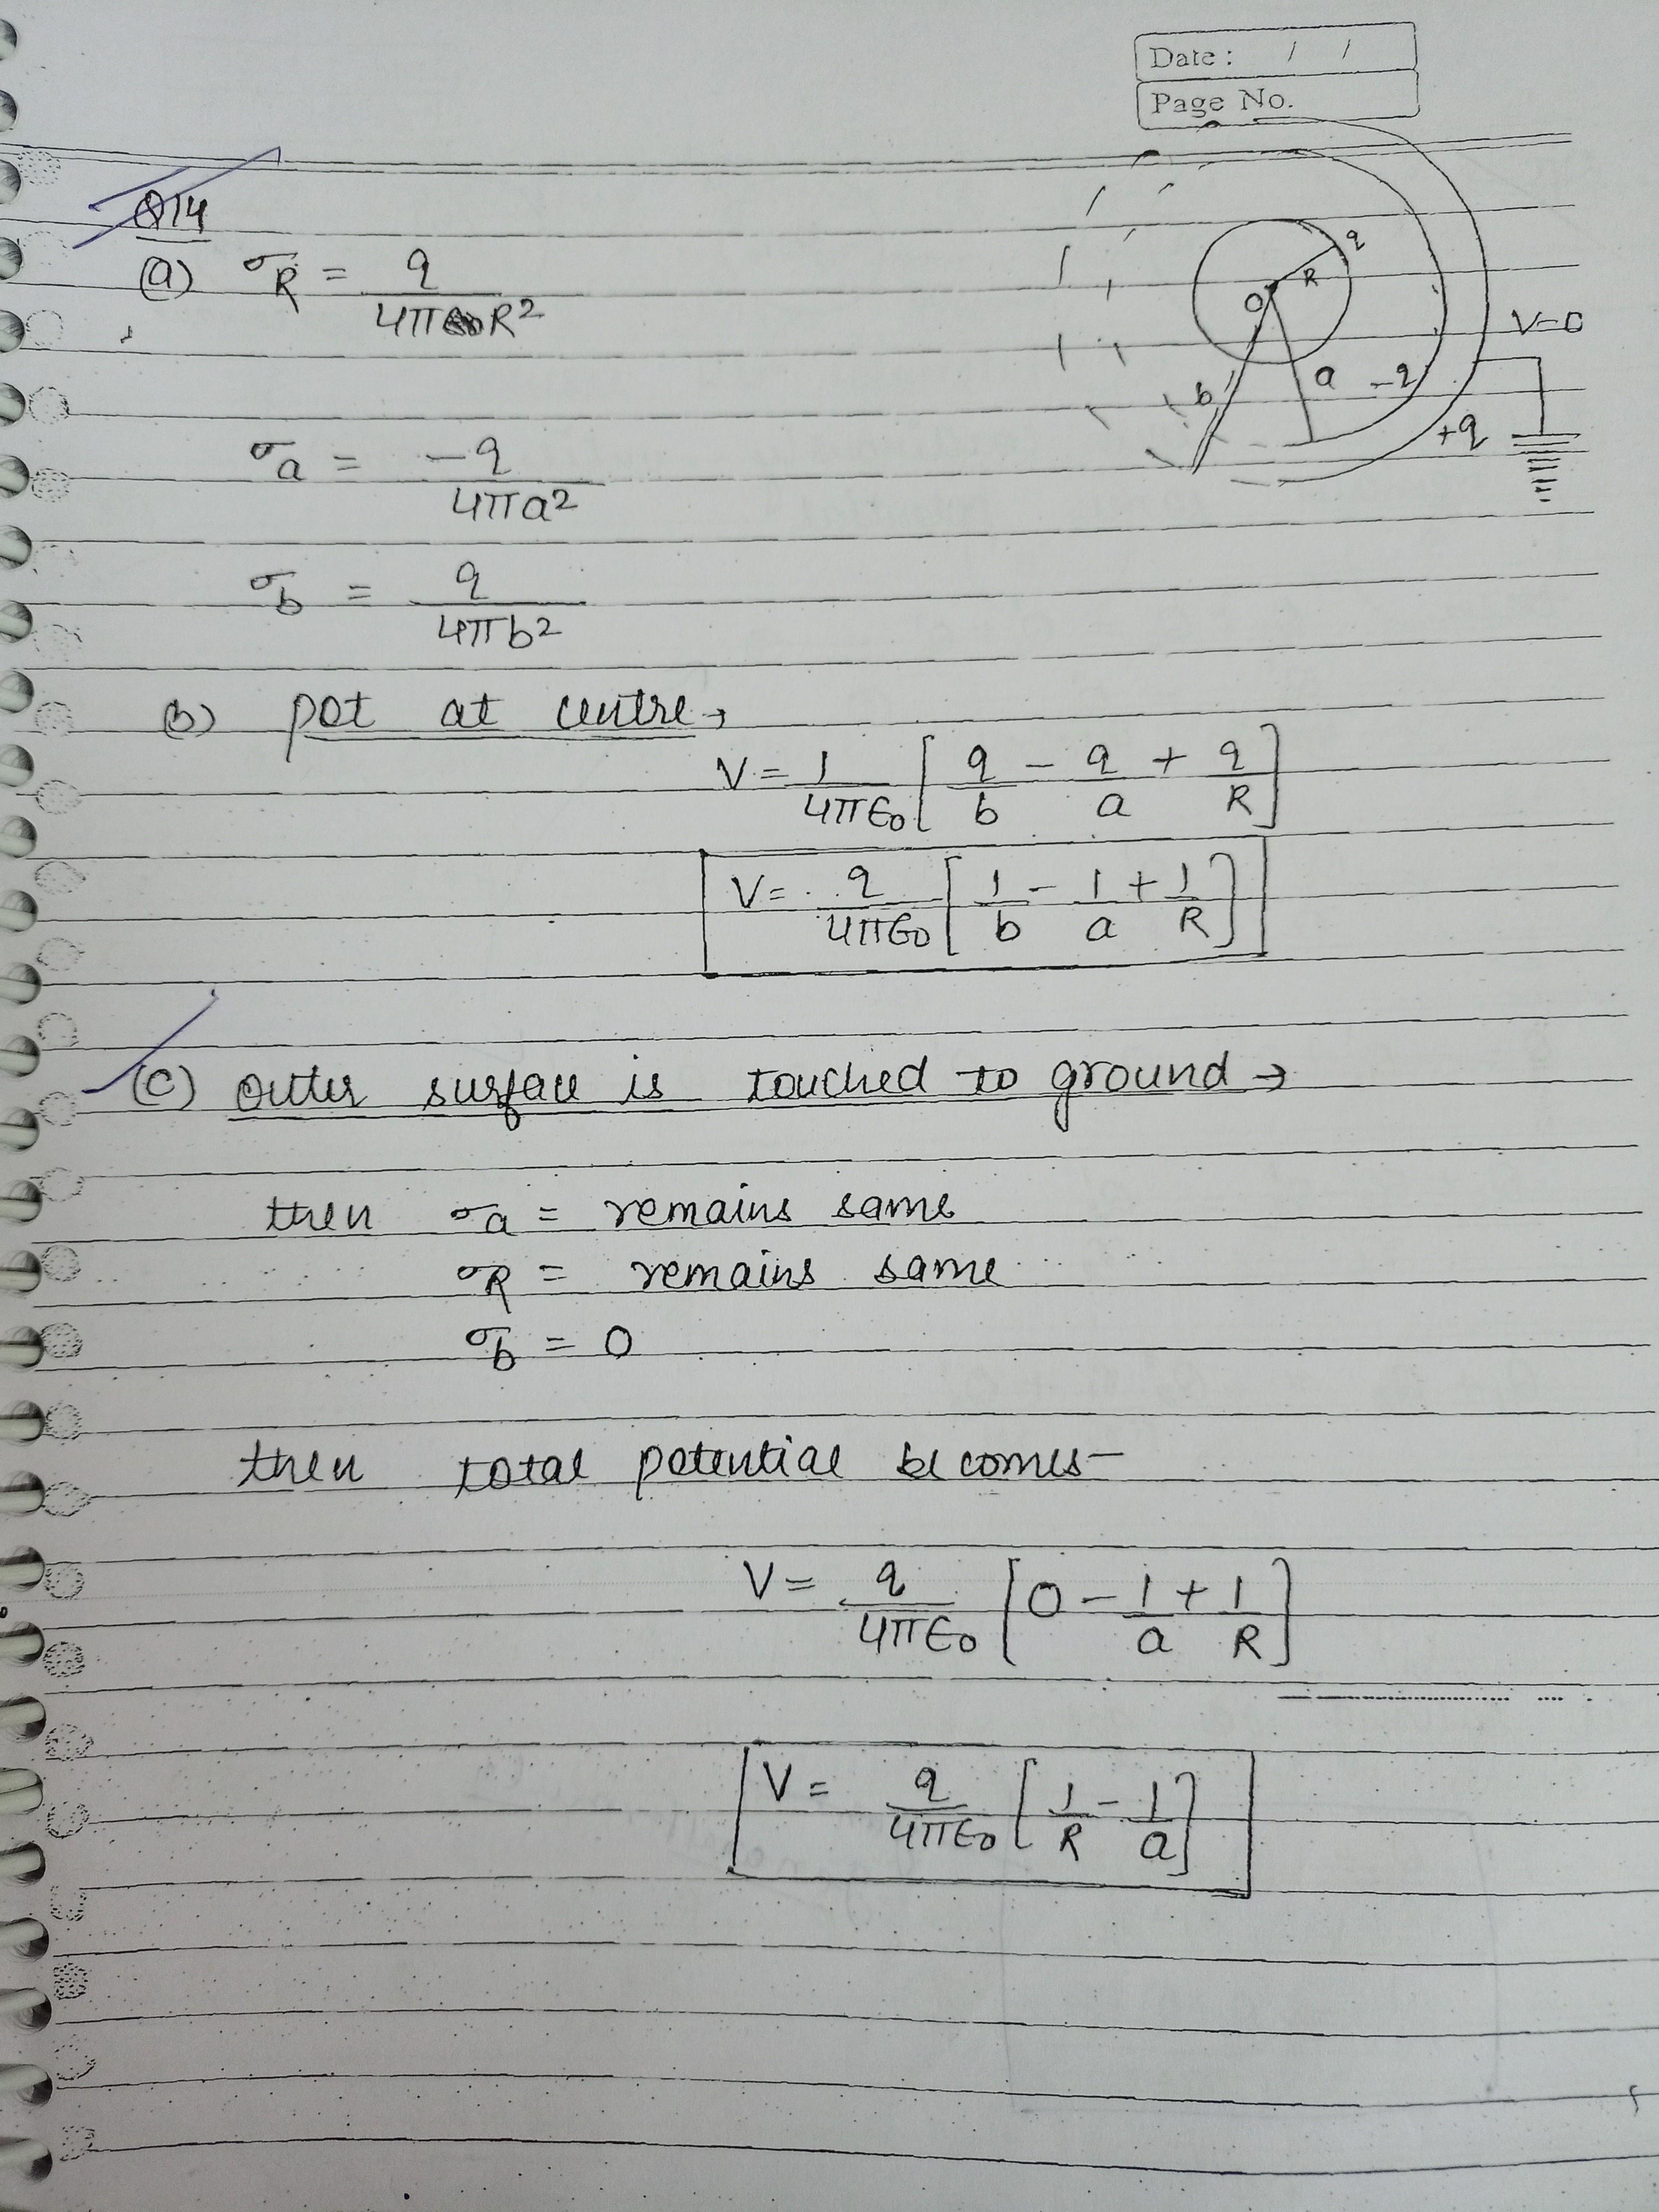 Date :    /    /
Page No.
Q14
(a) σR = q / 4πR²
σa = -q / 4πa²
σb = q / 4πb²
q
R
O
V=0
b
a
-q
+q
(b) pot at centre →
V = 1/4πε0 [ q/b - q/a + q/R ]
V = q/4πε0 [ 1/b - 1/a + 1/R ]
(c) outer surface is touched to ground →
then σa = remains same
σR = remains same
σb = 0
then total potential becomes -
V = q/4πε0 [ 0 - 1/a + 1/R ]
V = q/4πε0 [ 1/R - 1/a ]